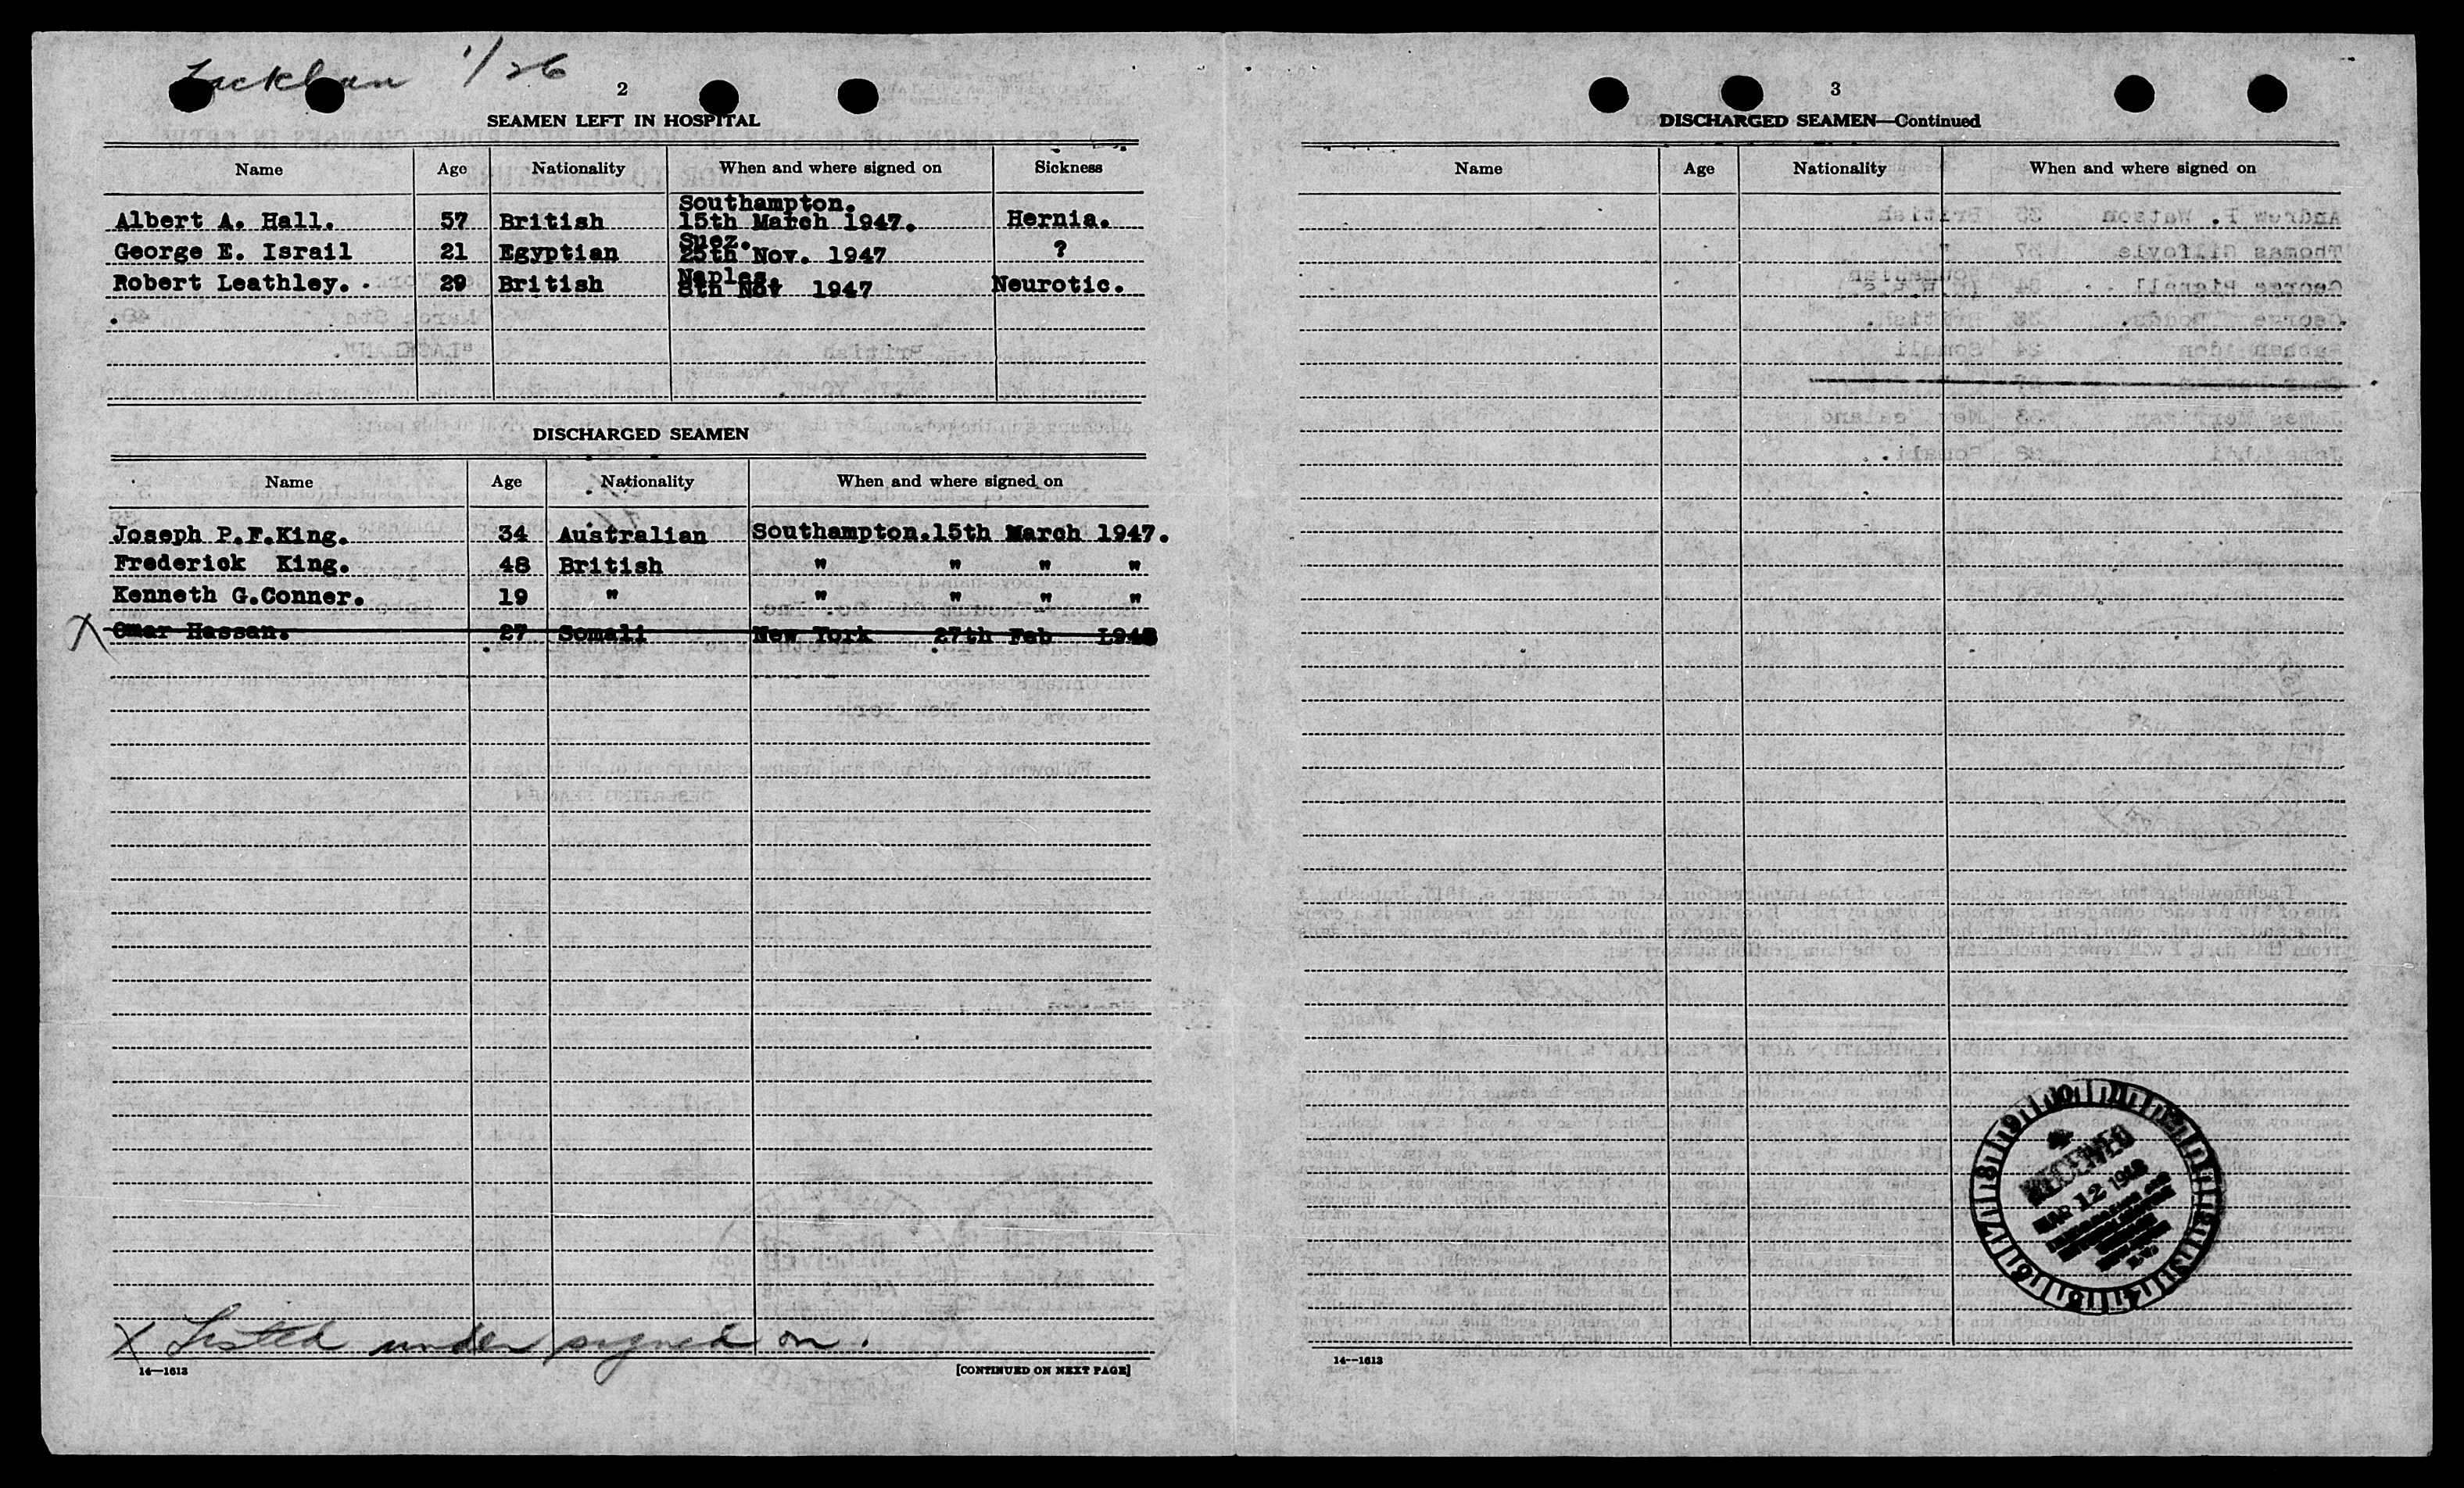 Lackhan 1/26
2
SEAMEN LEFT IN HOSPITAL
Name Age Nationality When and where signed on Sickness
Southampton.
Albert A. Hall. 57 British 15th March 1947. Hernia.
Suez.
George E. Israil 21 Egyptian 25th Nov. 1947 ?
Naples.
Robert Leathley. 29 British 8th Nov 1947 Neurotic.
DISCHARGED SEAMEN
Name Age Nationality When and where signed on
Joseph P.F.King. 34 Australian Southampton.15th March 1947.
Frederick King. 48 British " " " "
Kenneth G.Conner. 19 " " " " "
X Omar Hassan. 27 Somali New York 27th Feb 1948
X Listed under signed on.
14—1613
[CONTINUED ON NEXT PAGE]
3
DISCHARGED SEAMEN—Continued
Name Age Nationality When and where signed on
RECEIVED
MAR 12 1948
14—1613